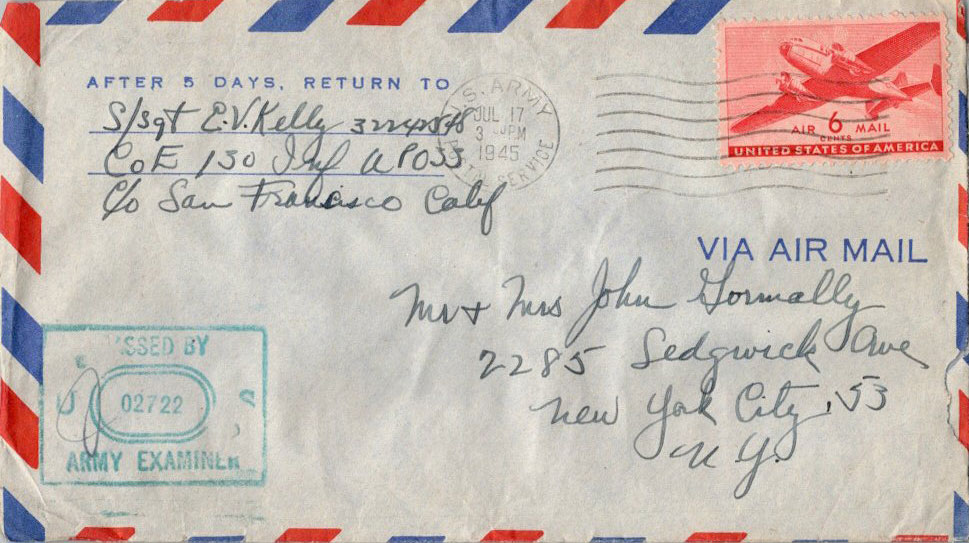 AFTER 5 DAYS, RETURN TO
S/Sgt E.V. Kelly 32242848
Co E 130 Inf APO 33
c/o San Francisco Calif
U.S. ARMY
JUL 17
3 PM
1945
SERVICE
AIR 6 MAIL
CENTS
UNITED STATES OF AMERICA
VIA AIR MAIL
Mr + Mrs John Gormally
2285 Sedgwick Ave
New York City, 53
N.Y.
BY
02722
ARMY EXAMINER